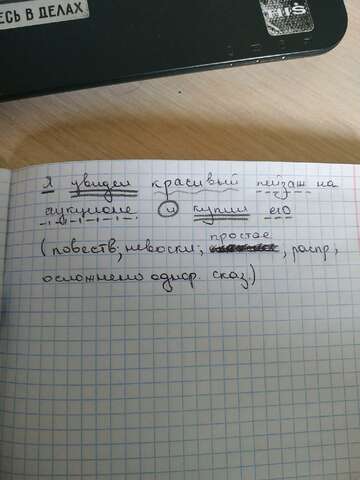 ЕСЬ В ДЕЛАХ
HIS
Я увидел красивый пейзаж на
аукционе и купил его
(повеств, невоскл; простое, распр,
осложнено однор. сказ.)